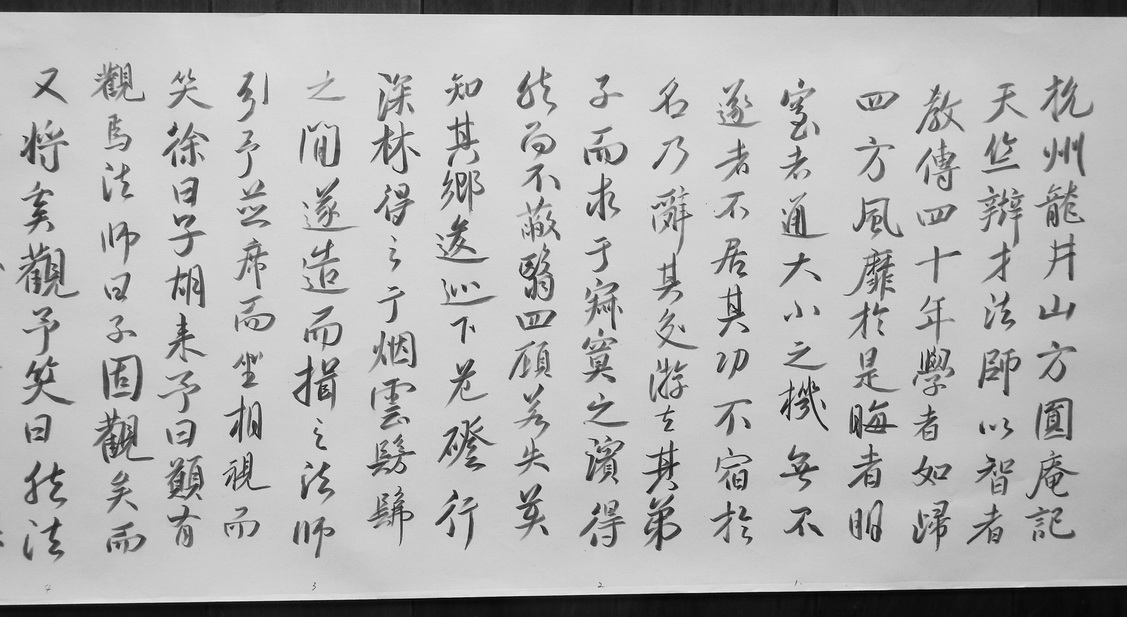 杭州龍井山方圓庵記
天竺辯才法師以智者
教傳四十年學者如歸
四方風靡於是晦者明
窒者通大小之機無不
遂者不居其功不宿於
名乃辭其交游去其弟
子而求于寂寞之濱得
然而不蔽翳四顧若失莫
知其鄉逡巡下危磴行
深林得之于烟雲髣髴
之間遂造而揖之法師
引予並席而坐相視而
笑徐曰子胡来予曰顥有
觀焉法師曰子固觀矣而
又將奚觀予笑曰然法
1
2
3
4